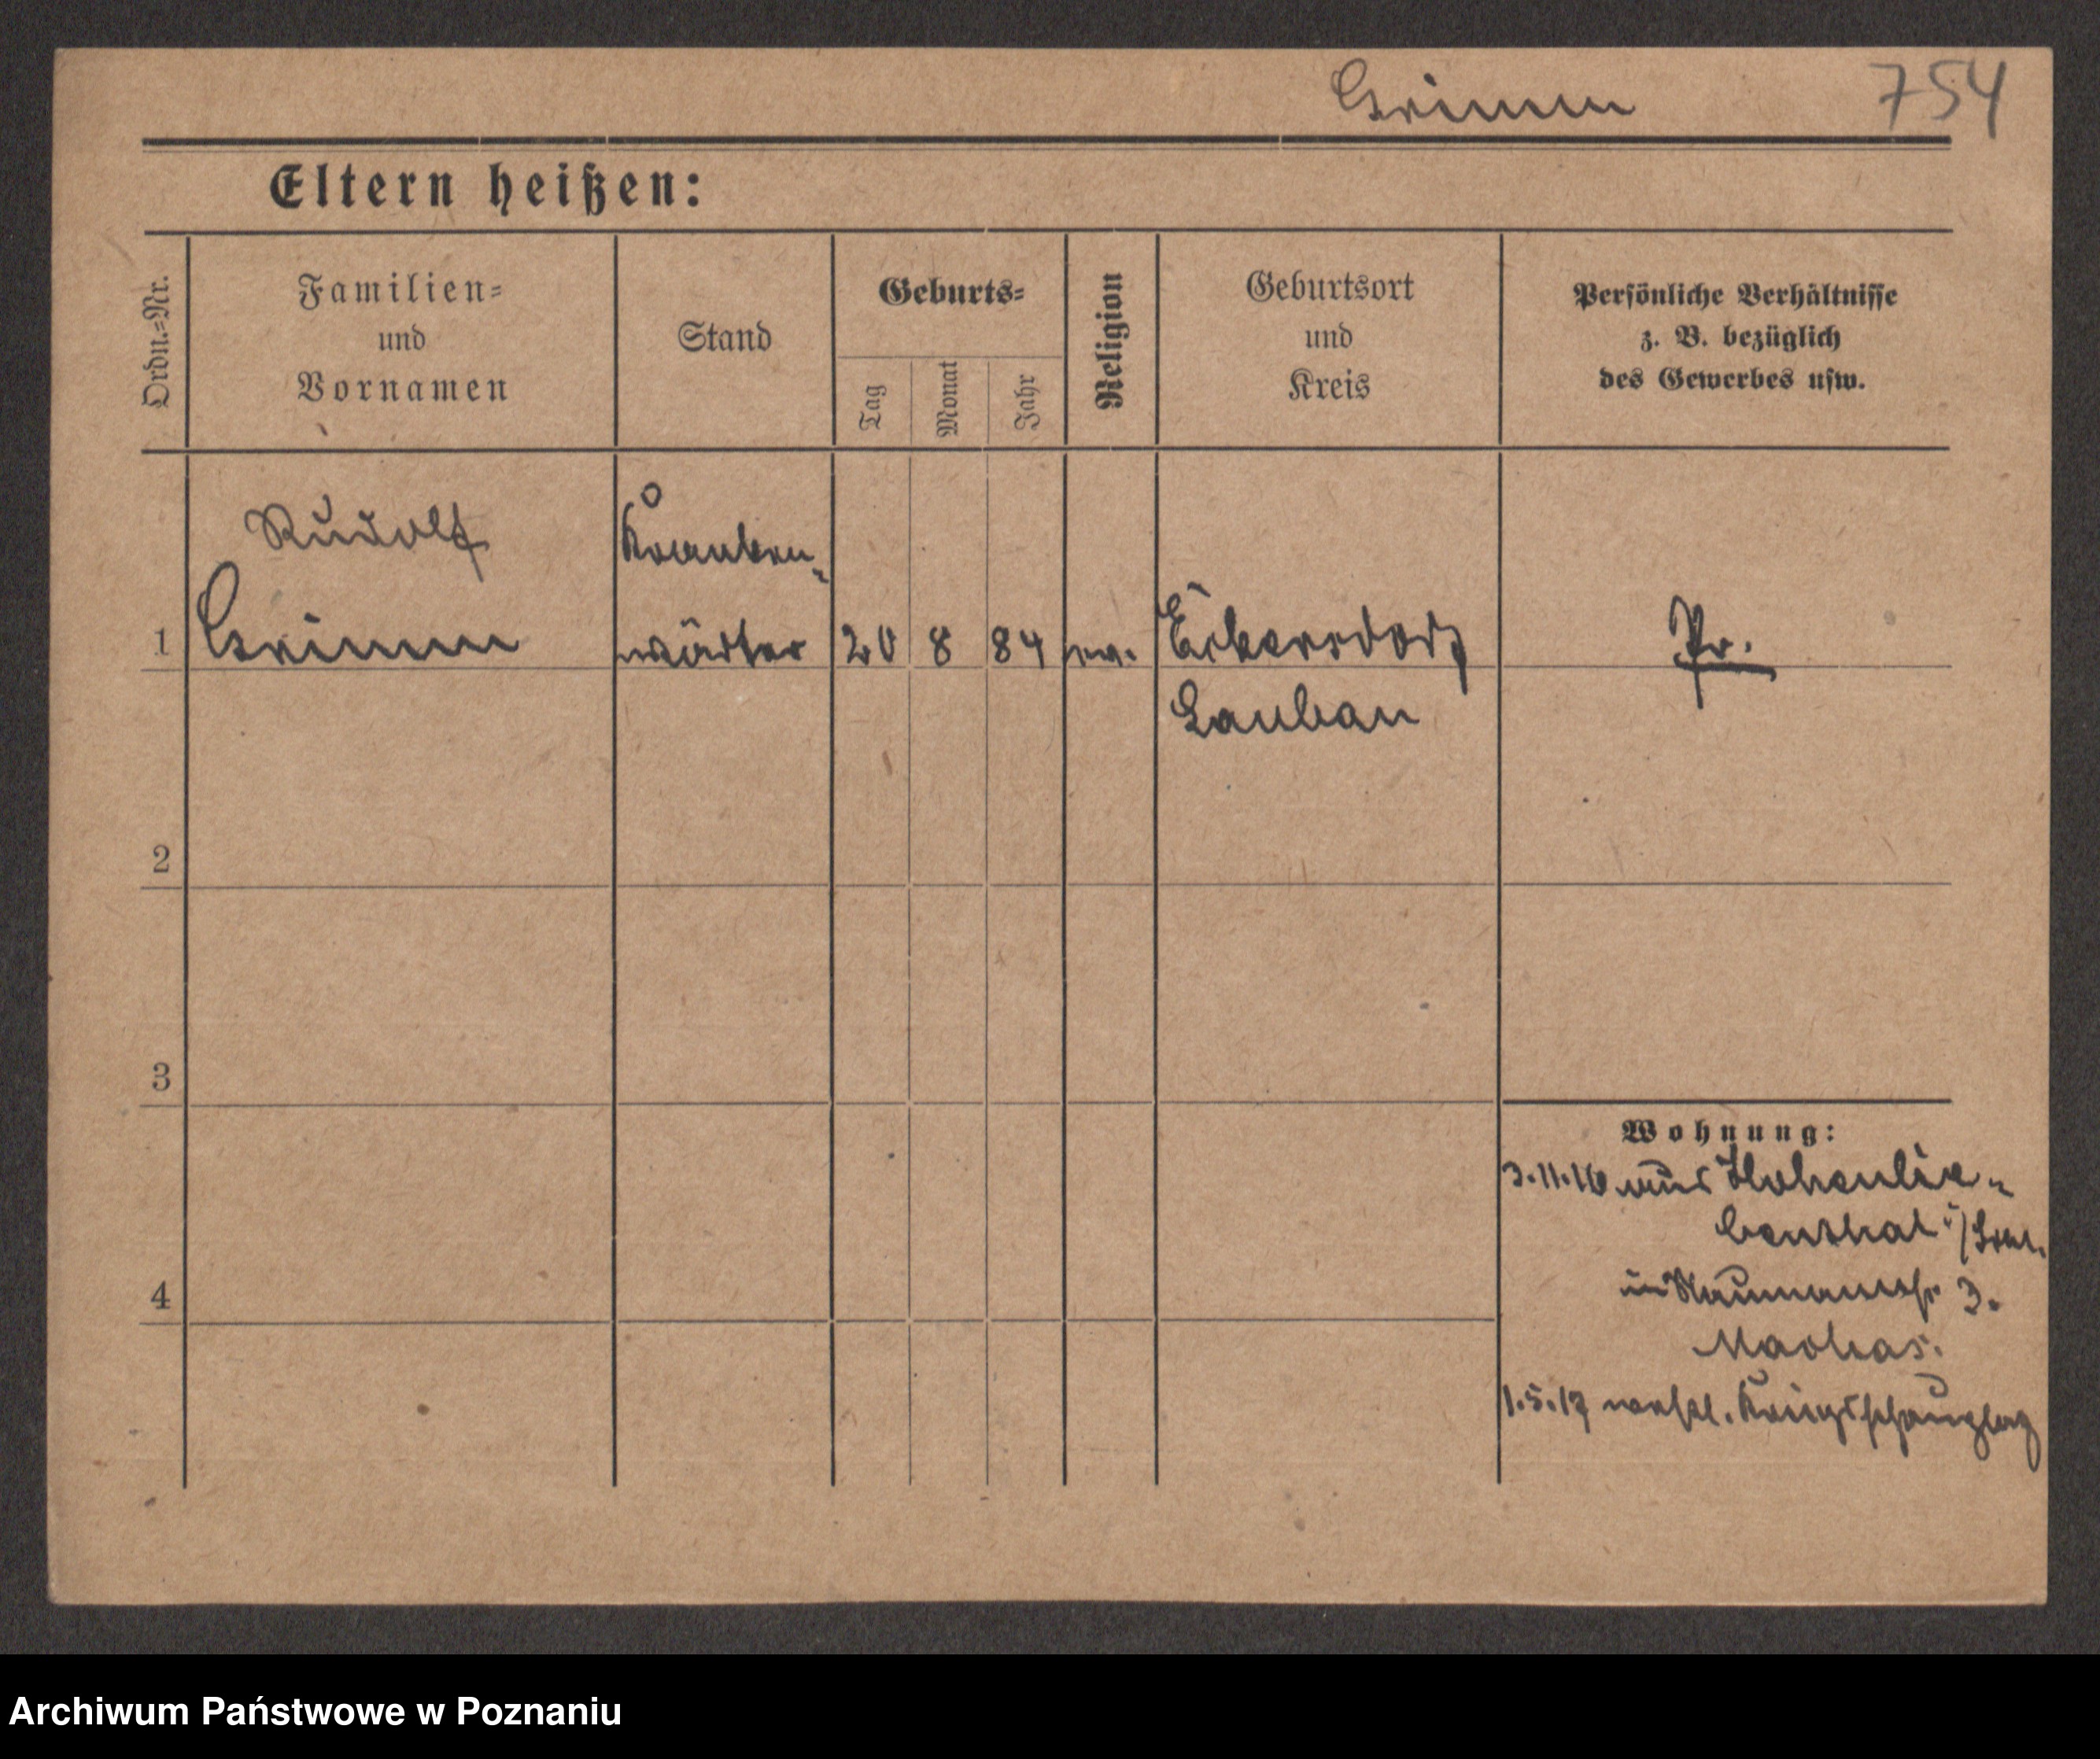 Grimm 754
Eltern heißen:
Ordn.=Nr.
Familien=
und
Vornamen
Stand
Geburts=
Tag
Monat
Jahr
Religion
Geburtsort
und
Kreis
Persönliche Verhältnisse
z. B. bezüglich
des Gewerbes usw.
Rudolf
Kranken-
1 Grimm wärter 20 8 84 ev. Eckersdorf Pr.
Lauban
2
3
Wohnung:
3.11.16 aus Hohenlie-
benthal
in Naumannstr. 3.
4
1.5.17 Kriegsschauplatz
Archiwum Państwowe w Poznaniu